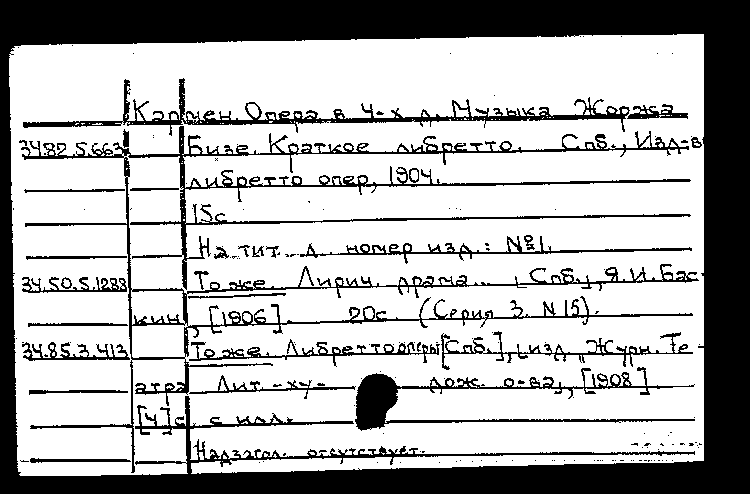 Кармен. Опера в 4-х д. Музыка Жоржа
34.82.5.663 Бизе. Краткое либретто. Спб., Изд-в
либретто опер, 1904.
15с
На тит. л. номер изд.: №1.
34.50.5.1288 То же. Лирич. драма... [Спб.], Я.И. Бас-
кин, [1906]. 20с. (Серия 3. N 15).
34.85.3.413 То же. Либретто оперы [Спб.], [изд. "Журн. Те-
атра Лит.-ху- дож. о-ва], [1908].
[4]с с илл.
Надзагол. отсутствует.